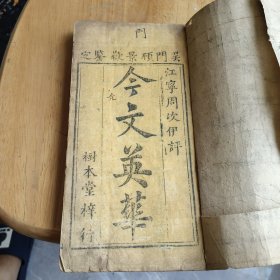 門
吳門顧景歡鑒定
江寧周汶伊評
今文英華
樹本堂梓行